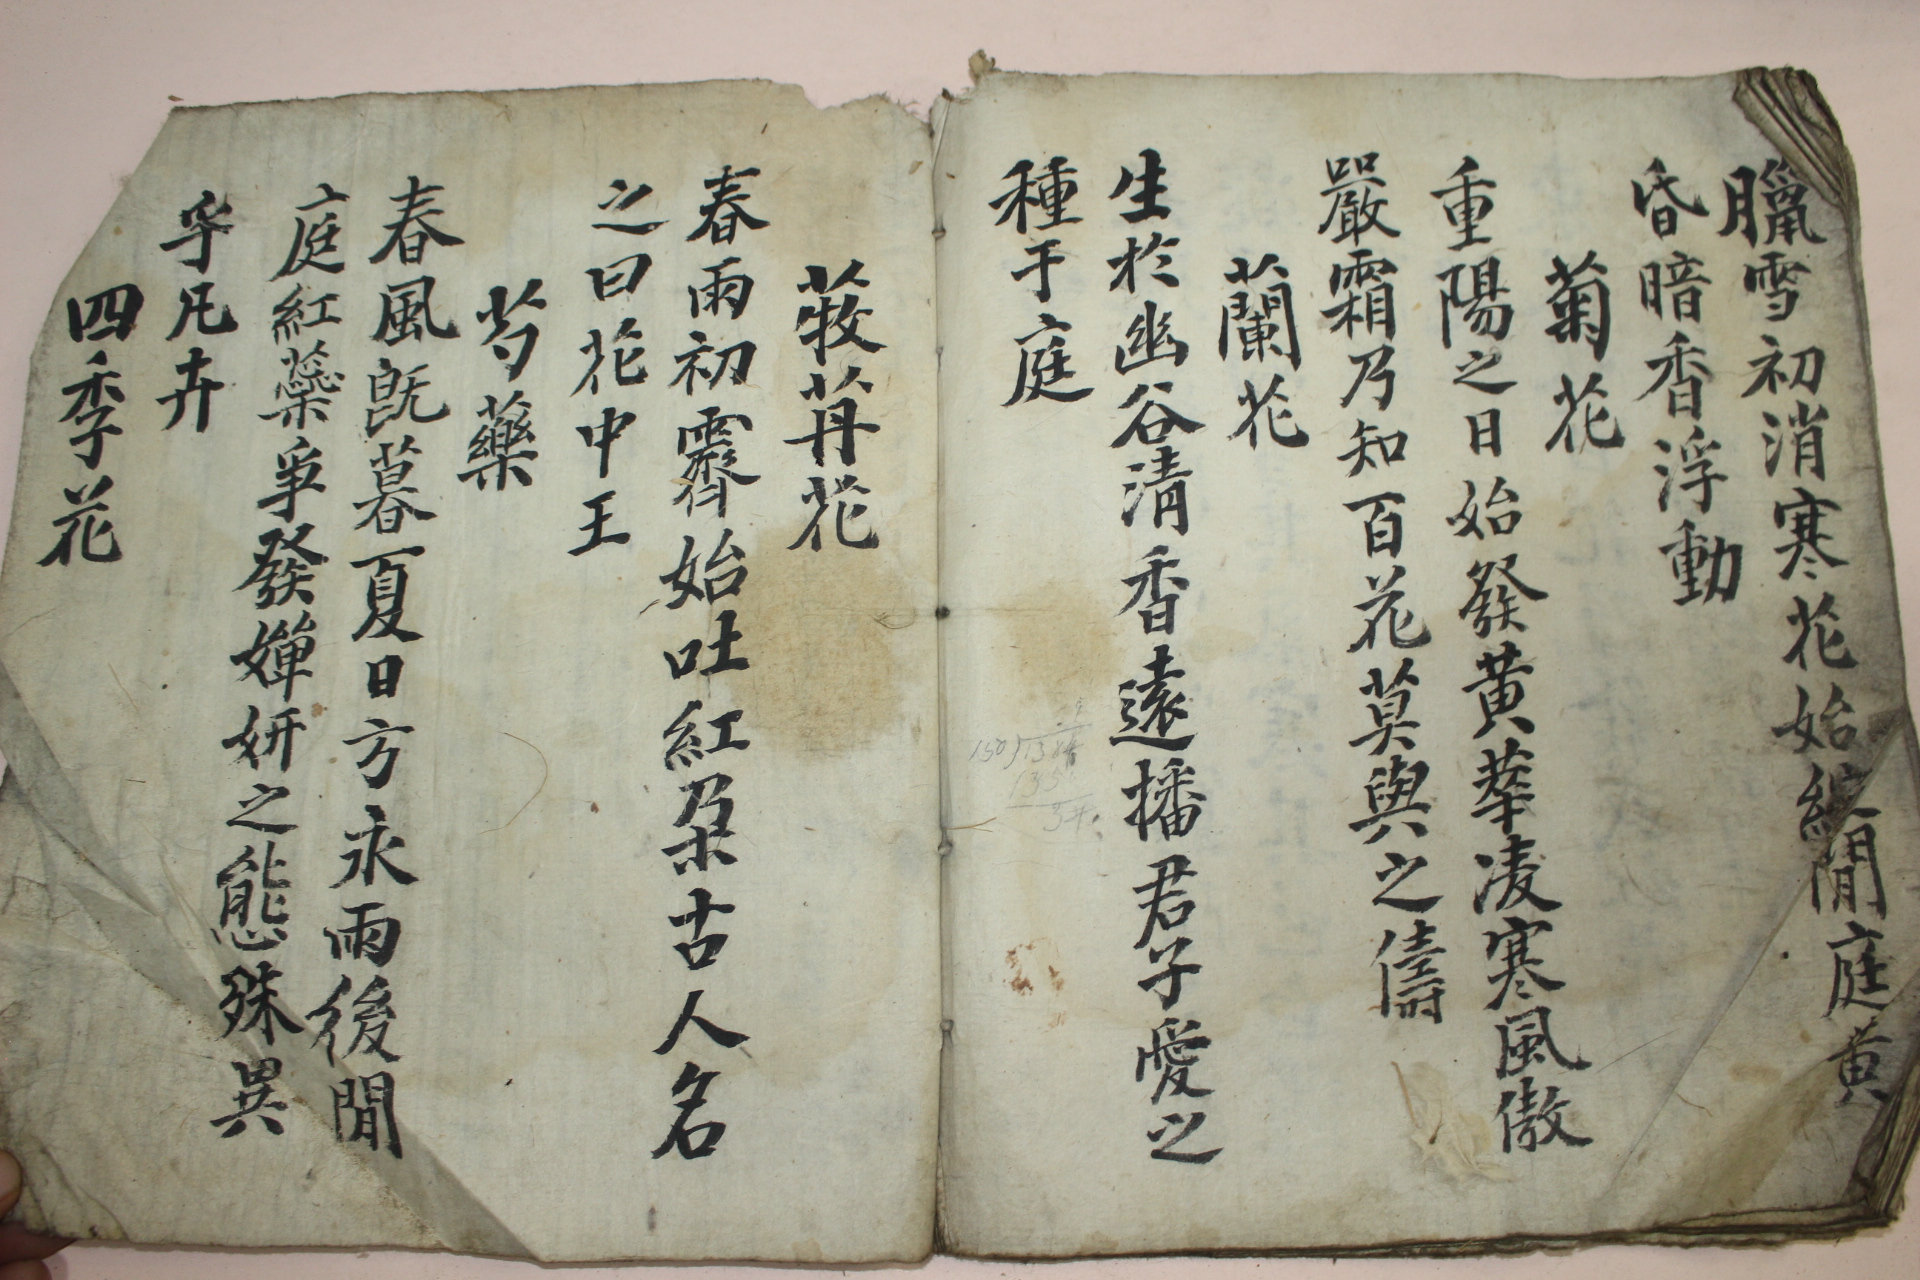 臘雪初消寒花始綻閒庭黃
昏暗香浮動
菊花
重陽之日始發黃華凌寒風傲
嚴霜乃知百花莫與之儔
蘭花
生於幽谷淸香遠播君子愛之
種于庭
牧丹花
春雨初霽始吐紅朶古人名
之曰花中王
芍藥
春風旣暮夏日方永雨後閒
庭紅蘂爭發嬋姸之態殊異
乎凡卉
四季花